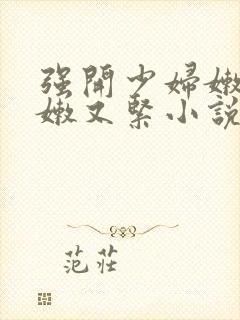 强開少婦嫩
嫩又緊小說
范莊